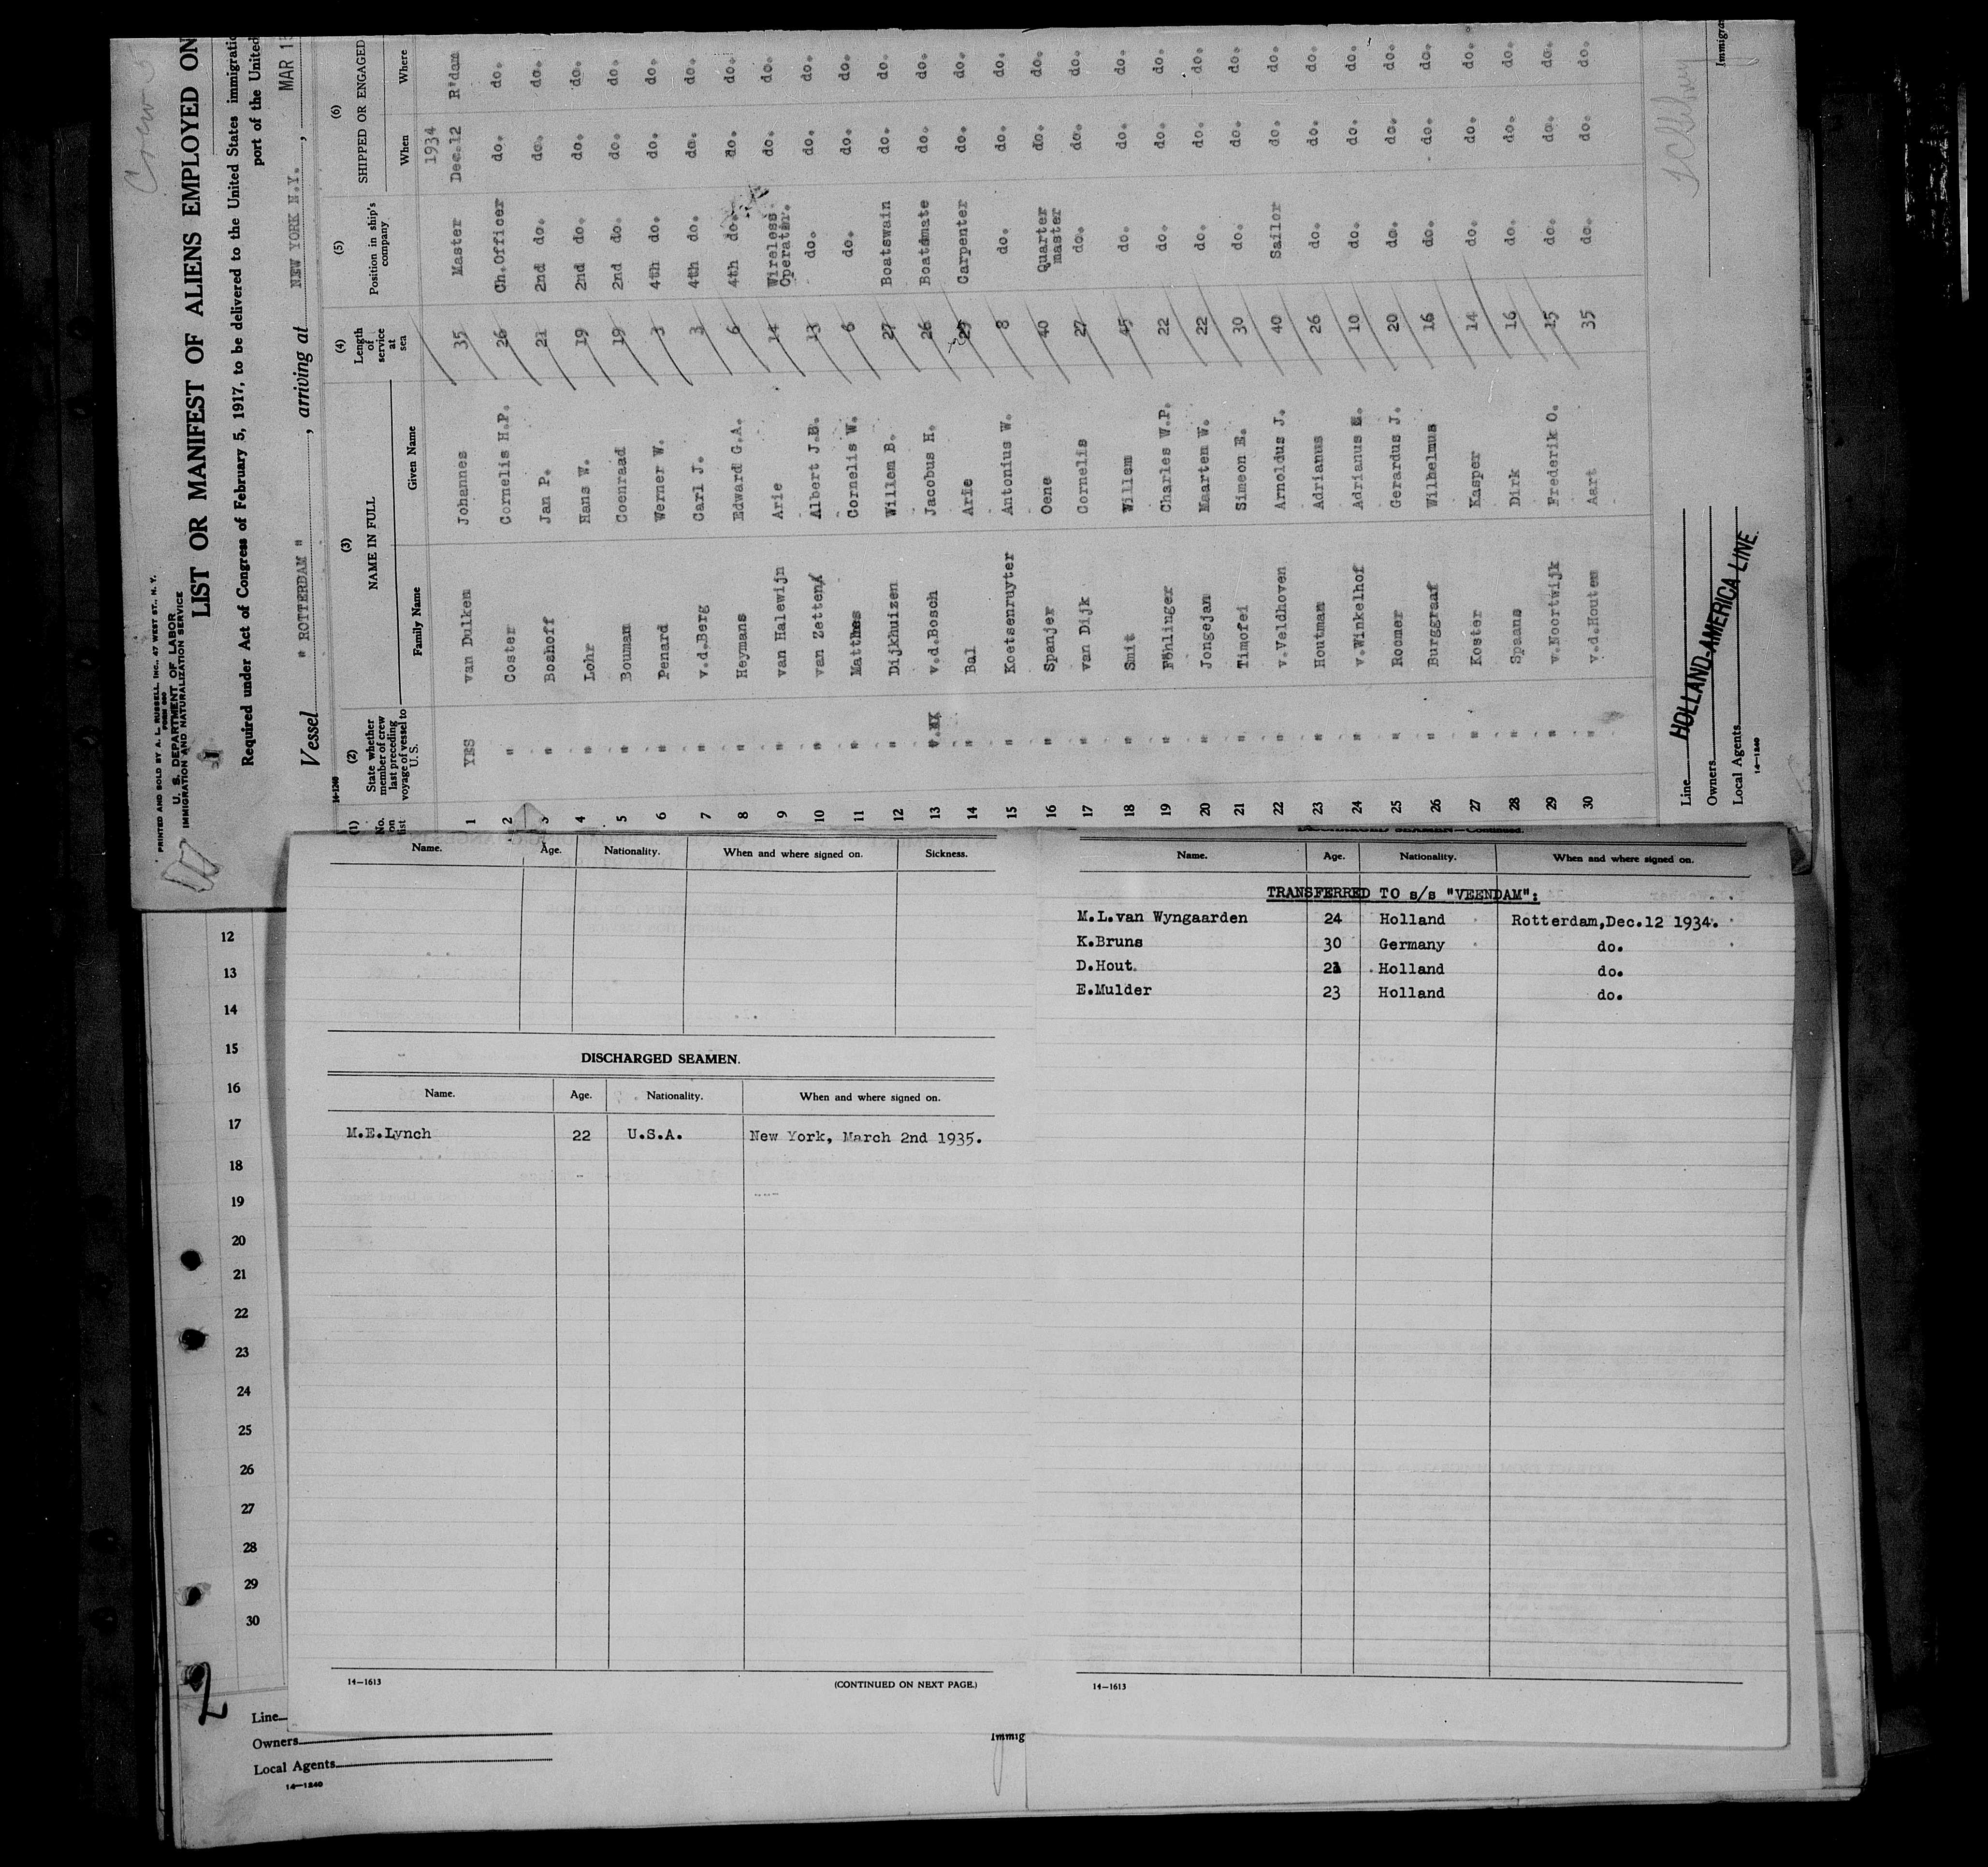 PRINTED AND SOLD BY A. L. RUSSELL, INC., 47 WEST ST., N. Y.
U. S. DEPARTMENT OF LABOR
IMMIGRATION AND NATURALIZATION SERVICE
Crew
LIST OR MANIFEST OF ALIENS EMPLOYED ON
Required under Act of Congress of February 5, 1917, to be delivered to the United States immigratio
port of the United
Vessel " ROTTERDAM " , arriving at NEW YORK N.Y. , MAR 13
14-1240
(1) (2) (3) (4) (5) (6)
No. on list State whether member of crew last preceding voyage of vessel to U. S. NAME IN FULL Length of service at sea Position in ship's company SHIPPED OR ENGAGED
Family Name Given Name When Where
1934
1 YES van Dulken Johannes 35 Master Dec.12 R'dam
2 " Coster Cornelis H.P. 26 Ch.Officer do. do.
3 " Boshoff Jan P. 21 2nd do. do. do.
4 " Lohr Hans W. 19 2nd do. do. do.
5 " Bouman Coenraad 19 2nd do. do. do.
6 " Penard Werner W. 3 4th do. do. do.
7 " v.d.Berg Carl J. 3 4th do. do. do.
8 " Heymans Edward G.A. 6 4th do. do. do.
9 " van Halewijn Arie 14 Wireless Operator. do. do.
10 " van Zetten Albert J.B. 13 do. do. do.
11 " Matthes Cornelis W. 6 do. do. do.
12 " Dijkhuizen Willem B. 27 Boatswain do. do.
13 v.d.Bosch Jacobus H. 26 Boatsmate do. do.
14 " Bal Arie Carpenter do. do.
15 " Koetsenruyter Antonius W. 8 do. do. do.
16 " Spanjer Oene 40 Quarter master do. do.
17 " van Dijk Cornelis 27 do. do. do.
18 " Smit Willem 45 do. do. do.
19 " Föhlinger Charles W.P. 22 do. do. do.
20 " Jongejan Maarten W. 22 do. do. do.
21 " Timofei Simeon E. 30 do. do. do.
22 " v.Veldhoven Arnoldus J. 40 Sailor do. do.
23 " Houtman Adrianus 26 do. do. do.
24 " v.Winkelhof Adrianus 10 do. do. do.
25 " Roomer Gerardus J. 20 do. do. do.
26 " Burggraaf Wilhelmus 16 do. do. do.
27 " Koster Kasper 14 do. do. do.
28 " Spaans Dirk 16 do. do. do.
29 " v.Noortwijk Frederik O. 15 do. do. do.
30 " v.d.Houten Aart 35 do. do. do.
Line HOLLAND-AMERICA LINE.
Owners
Local Agents
14-1240
Immigra
Name. Age. Nationality. When and where signed on. Sickness.
DISCHARGED SEAMEN.
Name. Age. Nationality. When and where signed on.
M.E.Lynch 22 U.S.A. New York, March 2nd 1935.
14-1613 (CONTINUED ON NEXT PAGE.)
DISCHARGED SEAMEN—Continued.
Name. Age. Nationality. When and where signed on.
TRANSFERRED TO s/s "VEENDAM":
M.L.van Wyngaarden 24 Holland Rotterdam,Dec.12 1934.
K.Bruns 30 Germany do.
D.Hout. Holland do.
E.Mulder 23 Holland do.
14-1613
12
13
14
15
16
17
18
19
20
21
22
23
24
25
26
27
28
29
30
2
Line
Owners
Local Agents
14-1240
Immig